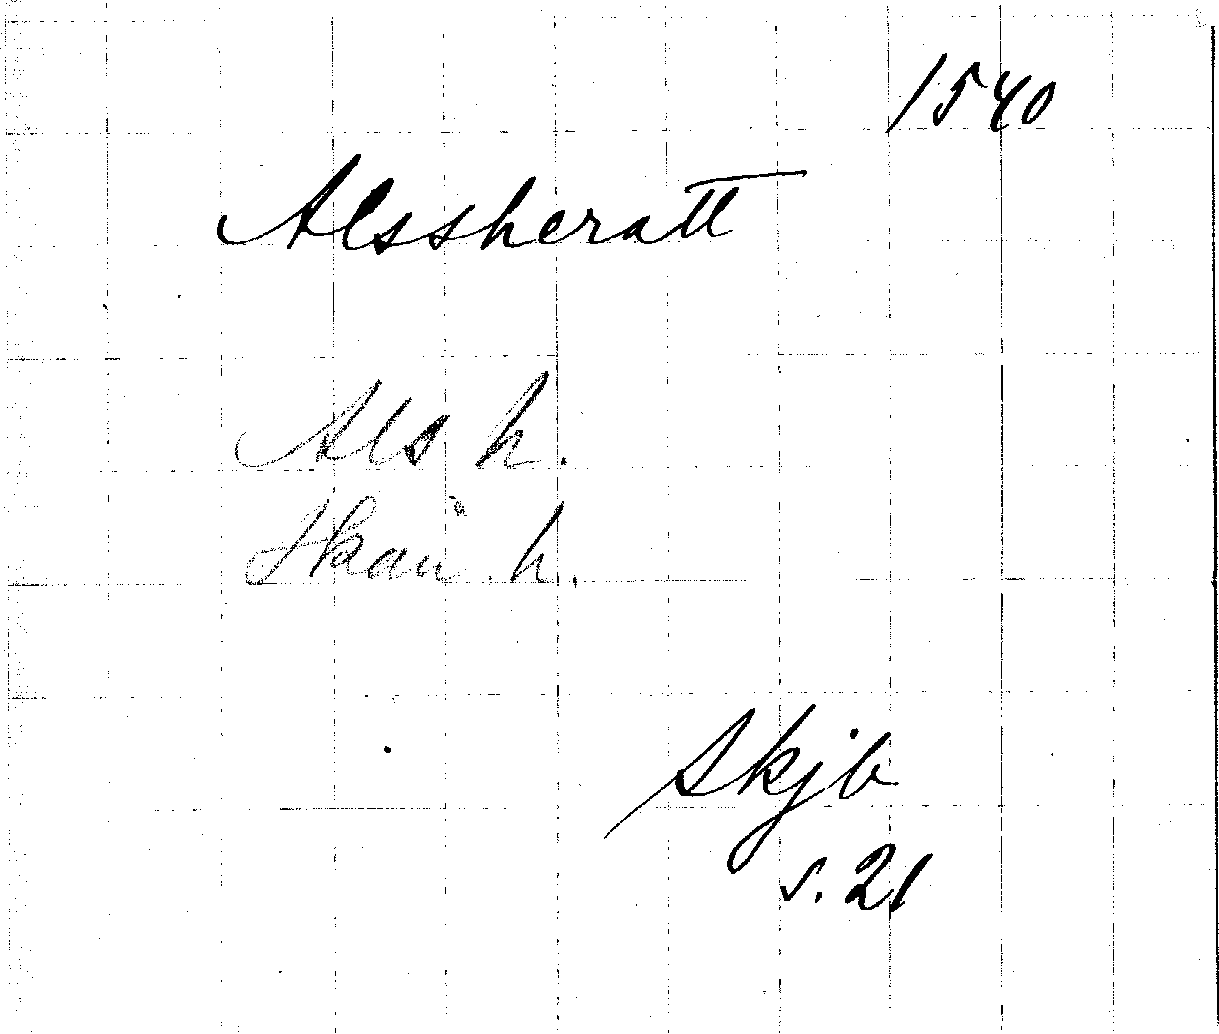 1540
Alssheratt
Als h.
Skån h.
Skjb
s. 21